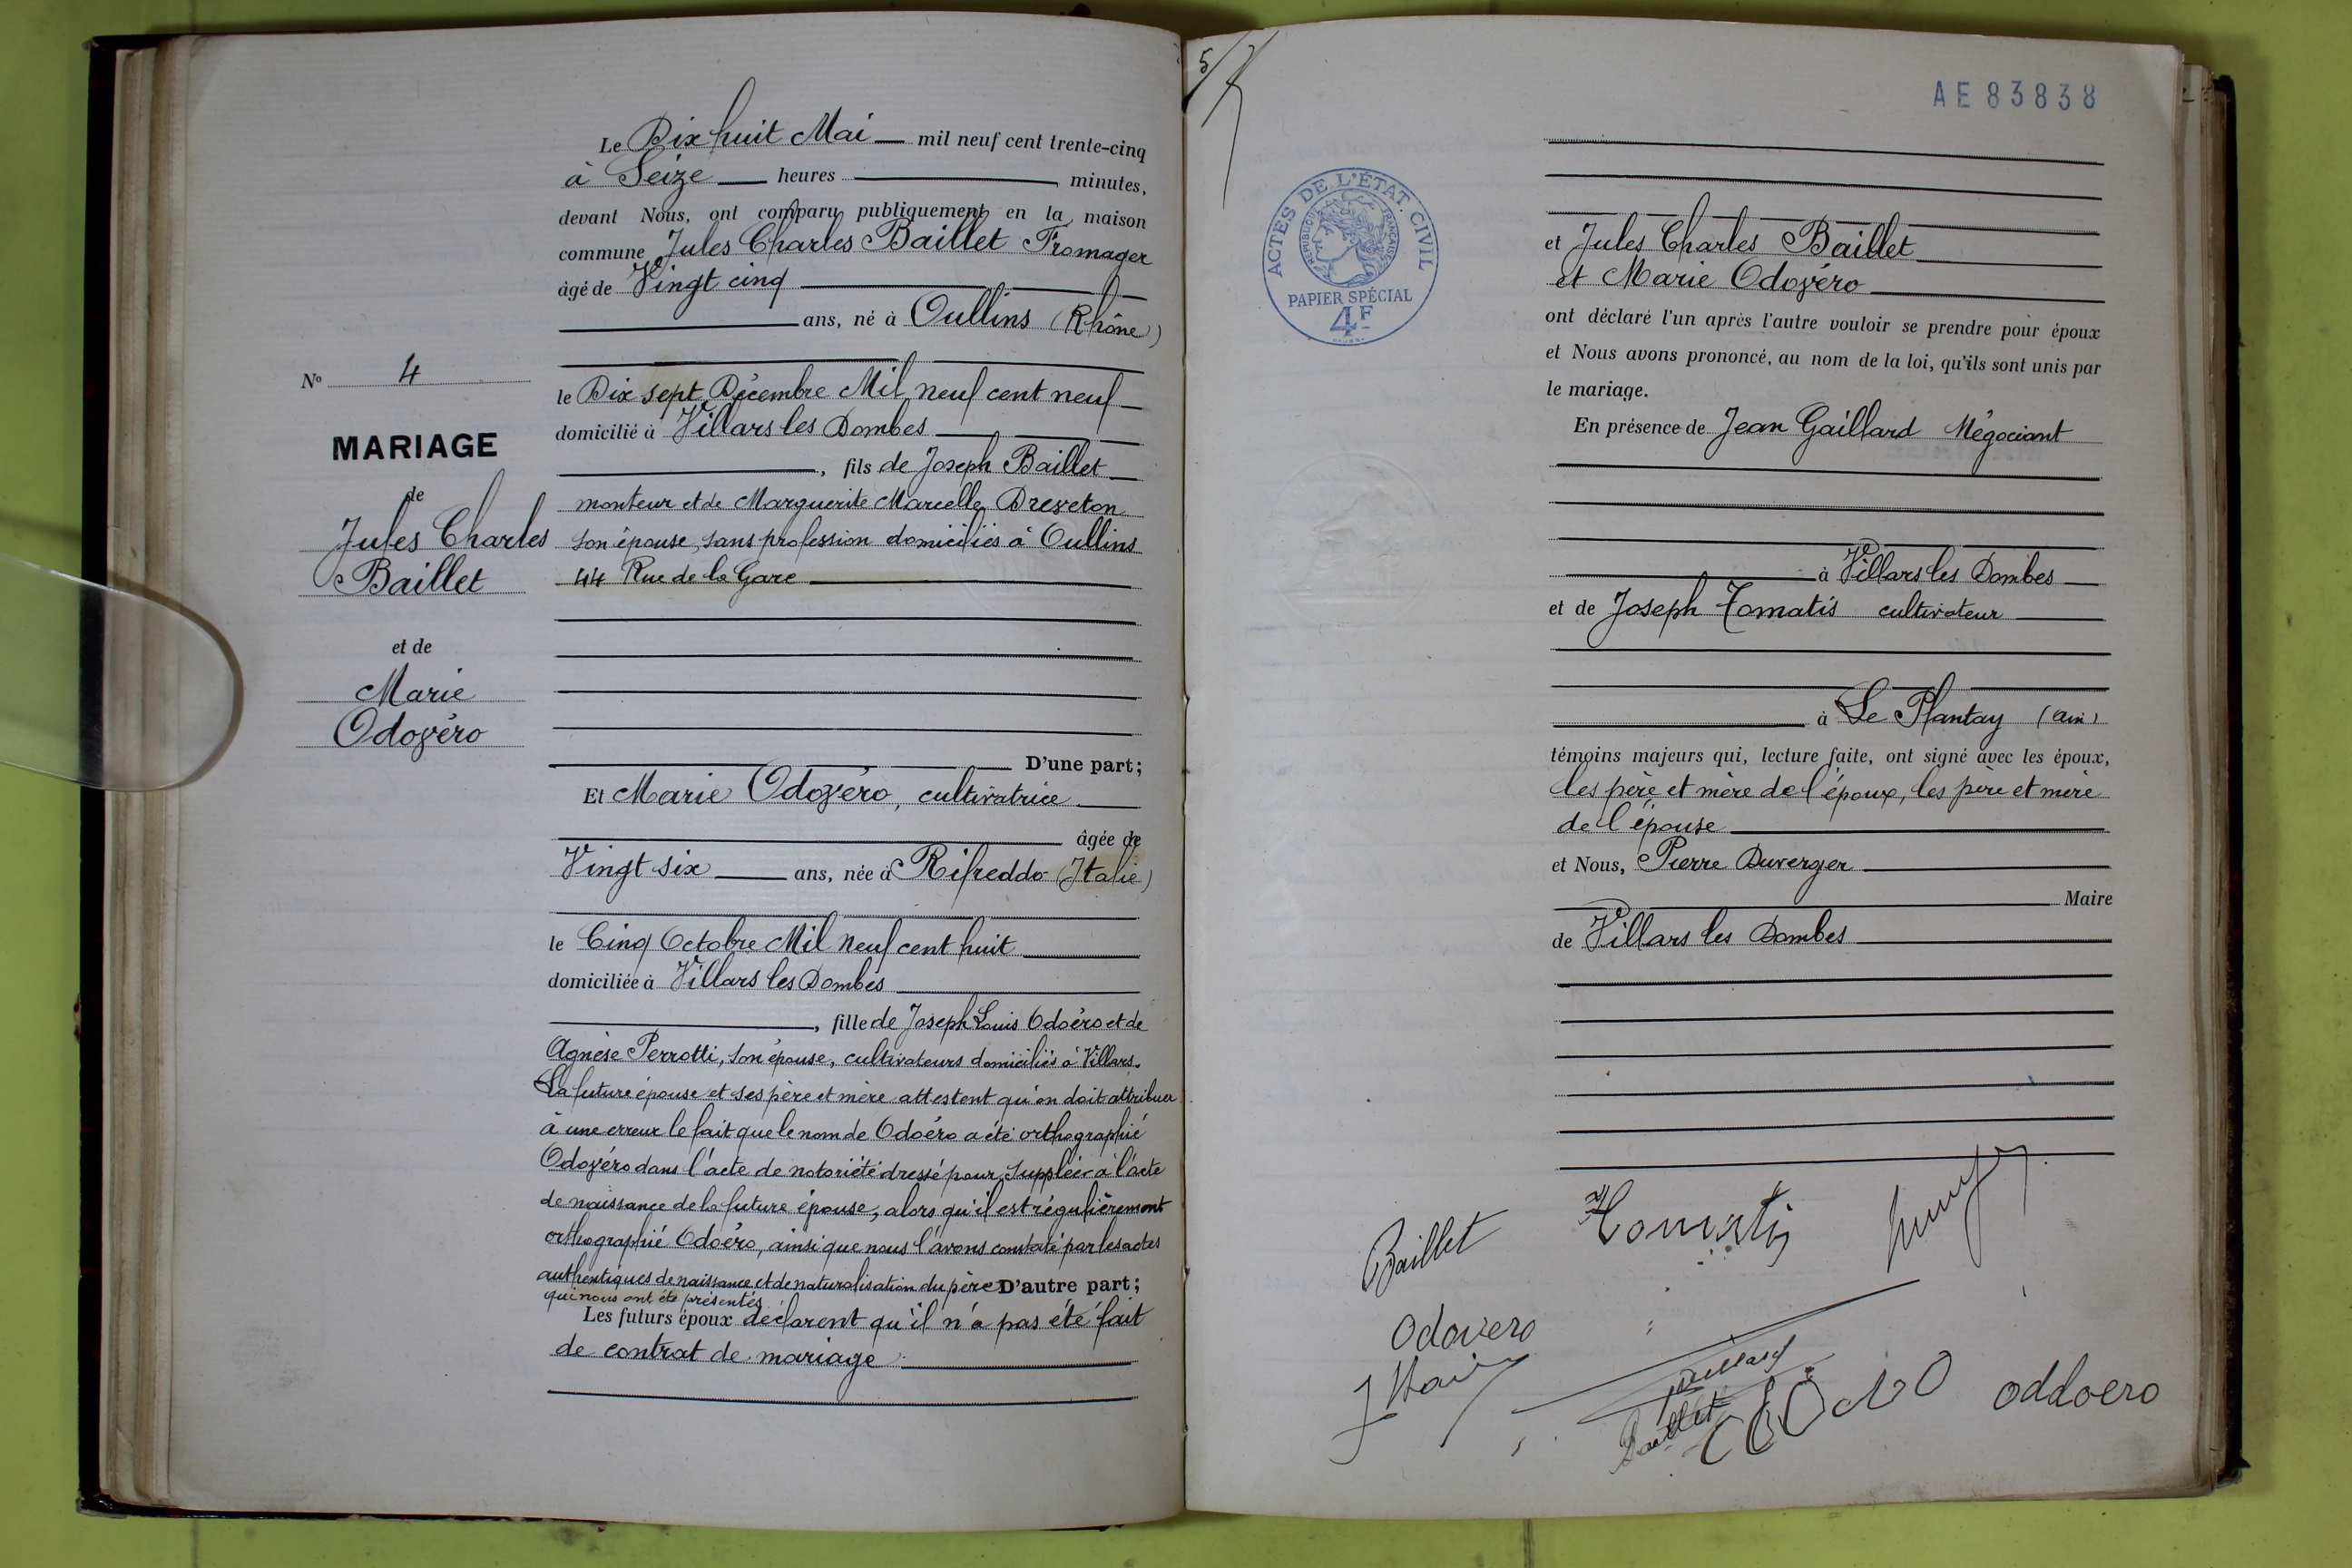 Le Dix huit Mai mil neuf cent trente-cinq
à Seize heures minutes,
devant Nous, ont comparu publiquement en la maison
commune Jules Charles Baillet Fromager
âgé de Vingt cinq
ans, né à Oullins (Rhône)
le Dix sept Décembre Mil neuf cent neuf
domicilié à Villars les Dombes
, fils de Joseph Baillet
monteur et de Marguerite Marcelle Dreveton
son épouse, sans profession domiciliés à Oullins
44 Rue de la Gare
D'une part;
Et Marie Odovéro, cultivatrice
âgée de
Vingt six ans, née à Rifreddo (Italie)
le Cinq Octobre Mil neuf cent huit
domiciliée à Villars les Dombes
, fille de Joseph Louis Odoéro et de
Agnèse Perrotti, son épouse, cultivateurs domiciliés à Villars.
La future épouse et ses père et mère attestent qu'on doit attribuer
à une erreur le fait que le nom de Odoéro a été orthographié
Odovéro dans l'acte de notoriété dressé pour suppléer à l'acte
de naissance de la future épouse, alors qu'il est régulièrement
orthographié Odoéro, ainsi que nous l'avons constaté par les actes
authentiques de naissance et de naturalisation du père D'autre part;
qui nous ont été présentés
Les futurs époux déclarent qu'il n'a pas été fait
de contrat de mariage
N° 4
MARIAGE
de
Jules Charles
Baillet
et de
Marie
Odovéro
5
AE 83838
ACTES DE L'ÉTAT CIVIL
RÉPUBLIQUE FRANÇAISE
PAPIER SPÉCIAL
4F
et Jules Charles Baillet
et Marie Odovéro
ont déclaré l'un après l'autre vouloir se prendre pour époux
et Nous avons prononcé, au nom de la loi, qu'ils sont unis par
le mariage.
En présence de Jean Gaillard Négociant
à Villars les Dombes
et de Joseph Tomatis cultivateur
à Le Plantay (Ain)
témoins majeurs qui, lecture faite, ont signé avec les époux,
les père et mère de l'époux, les père et mère
de l'épouse
et Nous, Pierre Duverger
Maire
de Villars les Dombes
Baillet
Tomatis
Odovero
Baillet
oddoero